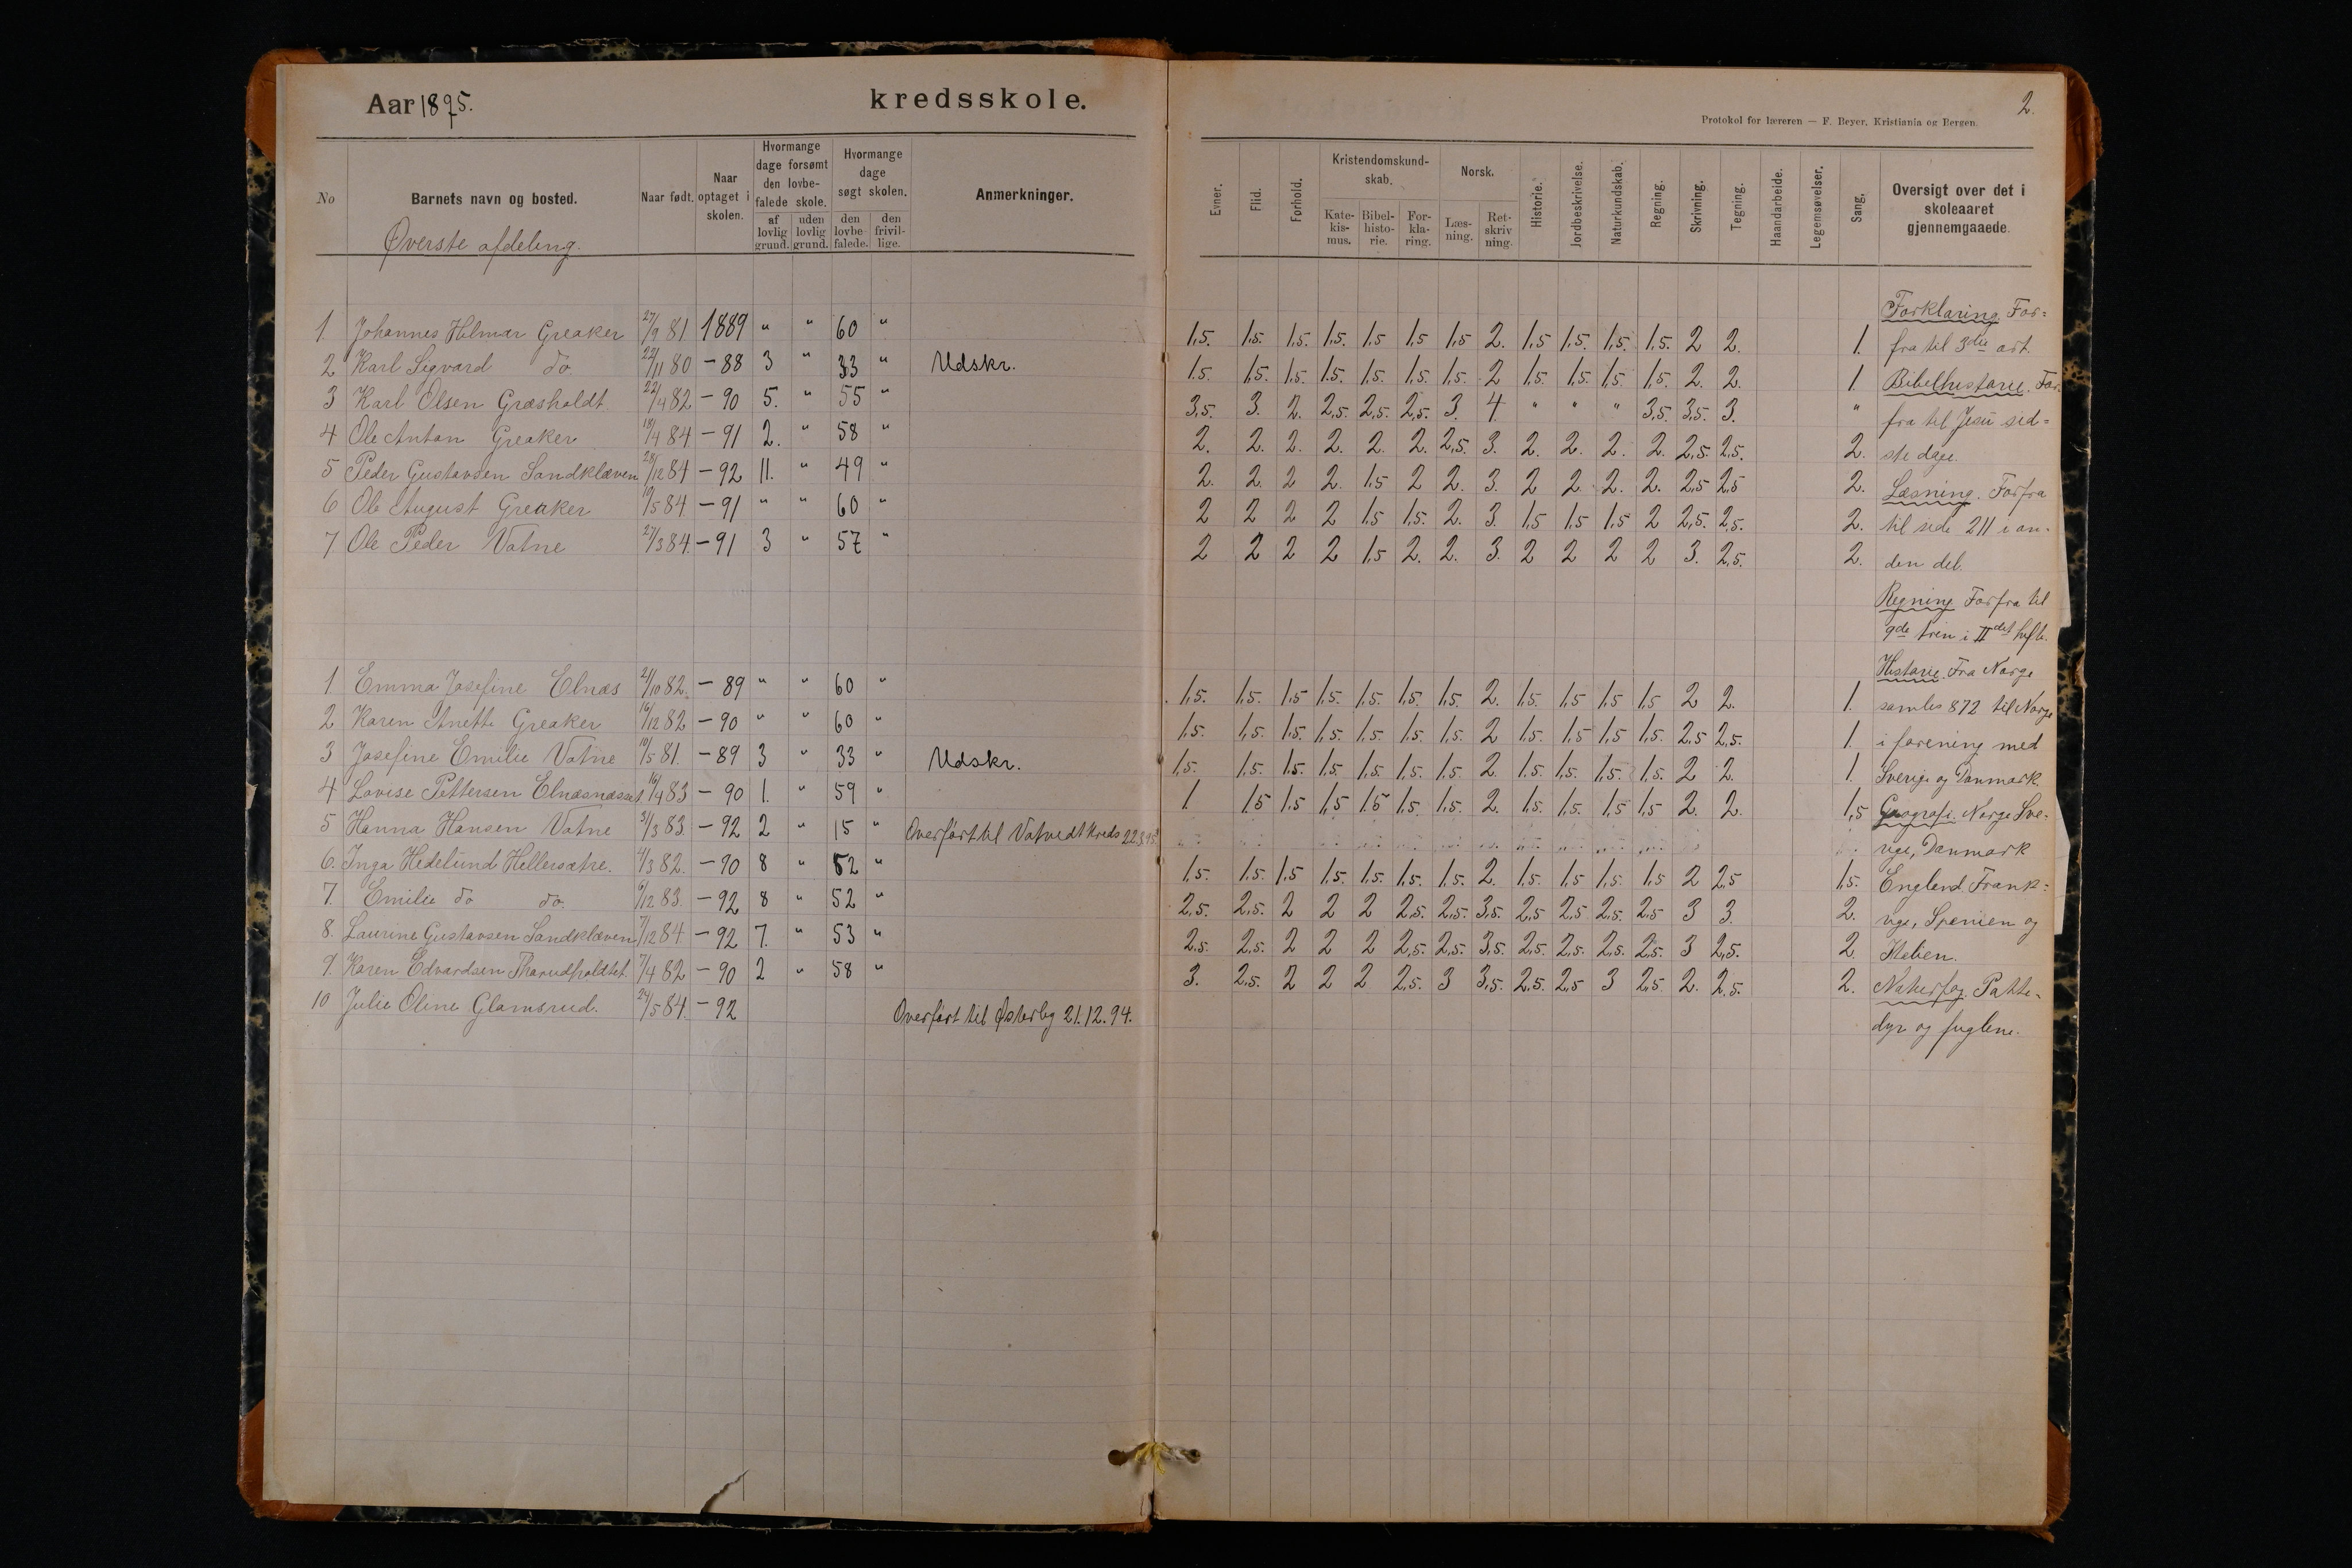 Aar 1895. kredsskole.
No Barnets navn og bosted. Naar født. Naar optaget i skolen. Hvormange dage forsømt den lovbefalede skole. af lovlig grund. uden lovlig grund. Hvormange dage søgt skolen. den lovbefalede. den frivillige. Anmerkninger.
Øverste afdeling.
1. Johannes Hilmar Greaker 27/9 81. 1889 " " 60 "
2 Karl Sigvard do 22/11 80 - 88 3 " 33 " Udskr.
3 Karl Olsen Græsholdt. 22/4 82 - 90 5. " 55 "
4 Ole Anton Greaker 18/4 84 - 91 2. " 58 "
5 Peder Gustavsen Sandkleven 28/12 84 - 92 11. " 49 "
6 Ole August Greaker 19/5 84 - 91 " " 60 "
7 Ole Peder Vatne 27/3 84. - 91 3 " 57 "
1 Emma Josefine Elnæs 21/10 82. - 89 " " 60 "
2 Karen Anette Greaker 16/12 82 - 90 " " 60 "
3 Josefine Emilie Vatne 10/5 81. - 89 3 " 33 " Udskr.
4 Lovise Pettersen Elnæsnæsset 16/4 83 - 90 1. " 59 "
5 Hanna Hansen Vatne 3/3 83. - 92 2 " 15 " Overført til Vatvedt kreds 22.3.95
6. Inga Hedelund Hellersætre. 4/3 82. - 90 8 " 52 "
7. Emilie do do. 6/12 83. - 92 8 " 52 "
8. Laurine Gustavsen Sandkleven 7/12 84. - 92 7. " 53 "
9. Karen Edvardsen Thorudholdtet. 7/4 82 - 90 2 " 58 "
10 Julie Oline Glamsrud. 24/5 84. - 92 Overført til Østerby 21.12.94.
2.
Protokol for læreren — F. Beyer, Kristiania og Bergen.
Evner. Flid. Forhold. Kristendomskundskab. Katekismus. Bibelhistorie. Forklaring. Norsk. Læsning. Retskrivning. Historie. Jordbeskrivelse. Naturkundskab. Regning. Skrivning. Tegning. Haandarbeide. Legemsøvelser. Sang. Oversigt over det i skoleaaret gjennemgaaede.
Forklaring. For=
1,5. 1,5. 1,5. 1,5. 1,5 1,5 1,5 2. 1,5 1,5. 1,5. 1,5. 2 2. 1. fra til 3die art.
1.5. 1,5. 1,5. 1.5. 1,5. 1,5. 1,5. 2 1,5. 1,5. 1,5. 1,5. 2. 2. 1. Bibelhistorie. For
3,5. 3. 2. 2,5. 2,5. 2,5. 3. 4 " " " 3,5. 3,5. 3. " fra til Jesu sid=
2. 2. 2. 2. 2. 2. 2,5. 3. 2. 2. 2. 2. 2,5 2,5. 2. ste dage.
2. 2. 2 2. 1,5 2 2. 3. 2 2. 2. 2. 2,5 2,5 2. Læsning. Forfra
2 2 2 2 1,5 1,5. 2. 3. 1,5 1,5 1,5 2 2,5. 2,5. 2. til side 211 i an-
2 2 2 2 1,5 2. 2. 3. 2 2 2 2 3. 2,5. 2. den del.
Regning Forfra til
9de trin i IIdet hefte.
Historie. Fra Norge
1,5. 1,5. 1,5 1,5. 1,5. 1,5. 1,5. 2. 1,5. 1,5. 1,5 1,5 2 2. 1. samles 872 til Norge
1,5. 1,5. 1,5. 1,5. 1,5. 1,5. 1,5. 2 1,5. 1,5 1,5 1,5. 2,5 2,5. 1. i forening med
1,5. 1,5. 1,5. 1,5. 1,5. 1,5. 1,5. 2. 1,5. 1,5. 1,5. 1,5. 2 2. 1. Sverige og Danmark.
1 1,5 1,5 1,5 1,5 1,5. 1,5. 2. 1,5. 1,5. 1,5 1,5 2. 2. 1,5 Geografi. Norge Sve-
rige, Danmark
1,5. 1,5. 1,5 1,5. 1,5. 1,5. 1,5. 2. 1,5. 1,5 1,5. 1,5 2 2,5 1,5. England. Frank=
2,5. 2,5. 2 2 2 2,5. 2,5. 3,5. 2,5 2,5 2,5. 2,5 3 3. 2. rige, Spanien og
2.5. 2,5. 2 2 2 2,5. 2,5. 3,5. 2,5. 2,5. 2,5. 2,5. 3 2,5. 2. Italien.
3. 2,5. 2 2 2 2,5. 3 3,5. 2,5. 2,5 3 2,5. 2. 2,5. 2. Naturfag. Patte-
dyr og fuglene.